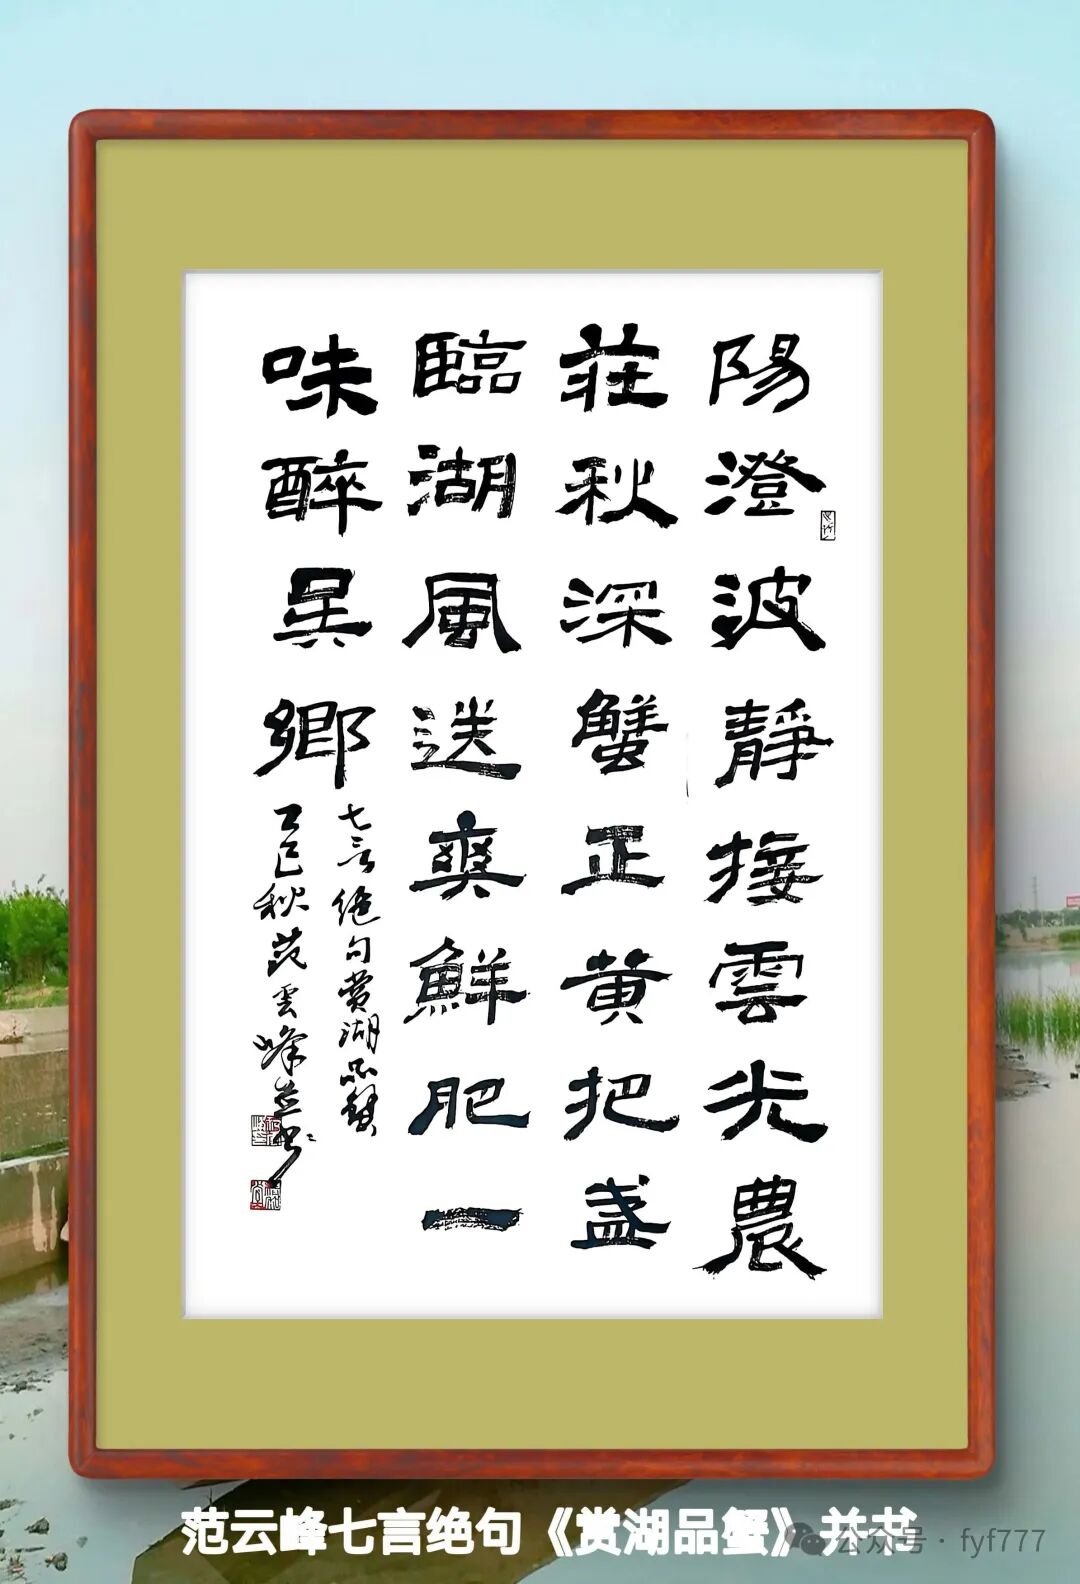 陽澄波靜接雲光農
莊秋深蟹正黄把盏
臨湖風送爽鮮肥一
味醉吴鄉
七言绝句賞湖品蟹
乙巳秋范雲峰并书
范云峰七言绝句《赏湖品蟹》并书
公众号·fyf777